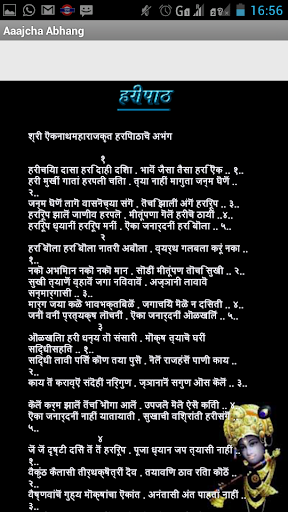 16:56
Aaajcha Abhang
हरीपाठ
श्री ऎकनाथमहाराजकृत हरपािठाचॆ अभंग
१
हरीचयिा दासा हर दिाही दशिा . भावॆं जैसा तैसा हर ऎिक .. १..
हरी मुखीं गातां हरपली चतिा . त्या नाहीं मागुता जन्म घॆणॆं
.. २..
जन्म घॆणॆं लागॆ वासनॆच्या संगॆं . तॆच झािलीं अंगॆं हररिूप .. ३..
हररिूप झालॆं जाणीव हरपलॆ . मीतूंपणा गॆलॆं हरीचॆ ठायीं ..४..
हररिूप ध्यानीं हररिूप मनीं . ऎका जनार्दनीं हर बिॊला .. ५..
२
हर बिॊला हर बिॊला नातरी अबॊला . व्यर्थ गलबला करूं नका ..
१..
नकॊ अभमिान नकॊ नकॊ मान . सॊडीं मीतूंपण तॊच सिुखी .. २..
सुखी त्याणॆं व्हावॆं जगा नविवावॆं . अज्ञानी लावावॆ
सन्मार्गासी .. ३..
मार्ग जया कळॆ भावभक्तबिळॆं . जगाचयिॆ मॆळॆ न दसिती .. ४..
जनीं वनीं प्रत्यक्ष लॊचनीं . ऎका जनार्दनीं ऒळखलिॆं .. ५..
३
ऒळखलिा हरी धन्य तॊ संसारीं . मॊक्ष त्याचॆ घरीं
सदि्धीसहति .. १..
सदि्धी लावी पसिॆं कॊण तया पुसॆ . नॆलॆं राजहंसॆं पाणी काय ..
२..
काय तॆं करावॆं संदॆहीं नरि्गुण . ज्ञानानॆं सगुण ऒस कॆलॆं .. ३..
कॆलॆं कर्म झालॆं तॆंच भिॊगा आलॆं . उपजलॆ मॆलॆ ऐसॆ कतिी .. ४..
ऎका जनार्दनीं नाहीं यातायाती . सुखाची वश्रिांती हरीसंगॆं ..
५..
४
जॆं जॆं दृष्टी दसिॆ तॆं तॆं हररिूप . पूजा ध्यान जप त्यासी नाहीं ..
१..
वैकुंठ कैलासी तीर्थक्षॆत्रीं दॆव . तयावणि ठाव रता कॊठॆं ..
वैष्णवांचॆं गुह्य मॊक्षांचा ऎकांत . अनंतासी अंत पाहतां नाहीं